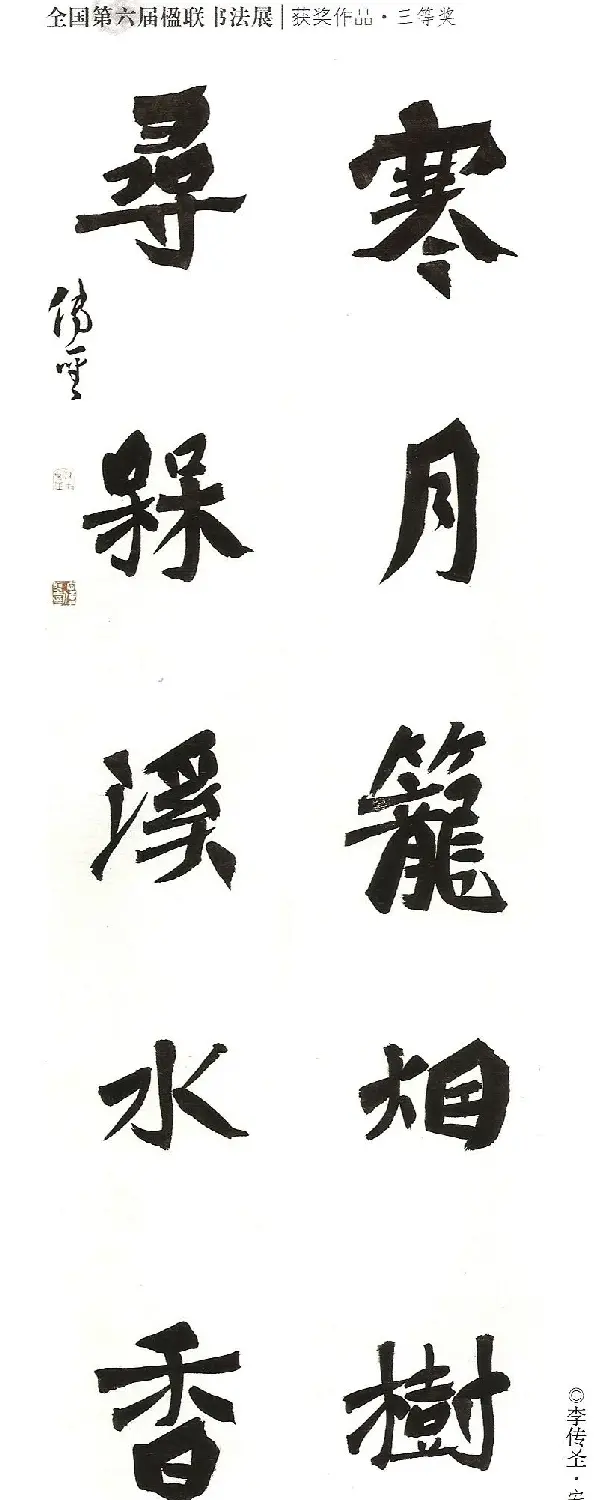 全国第六届楹联书法展|获奖作品·三等奖
寒月籠烟樹
尋槑溪水香
傳聖
©李传圣·